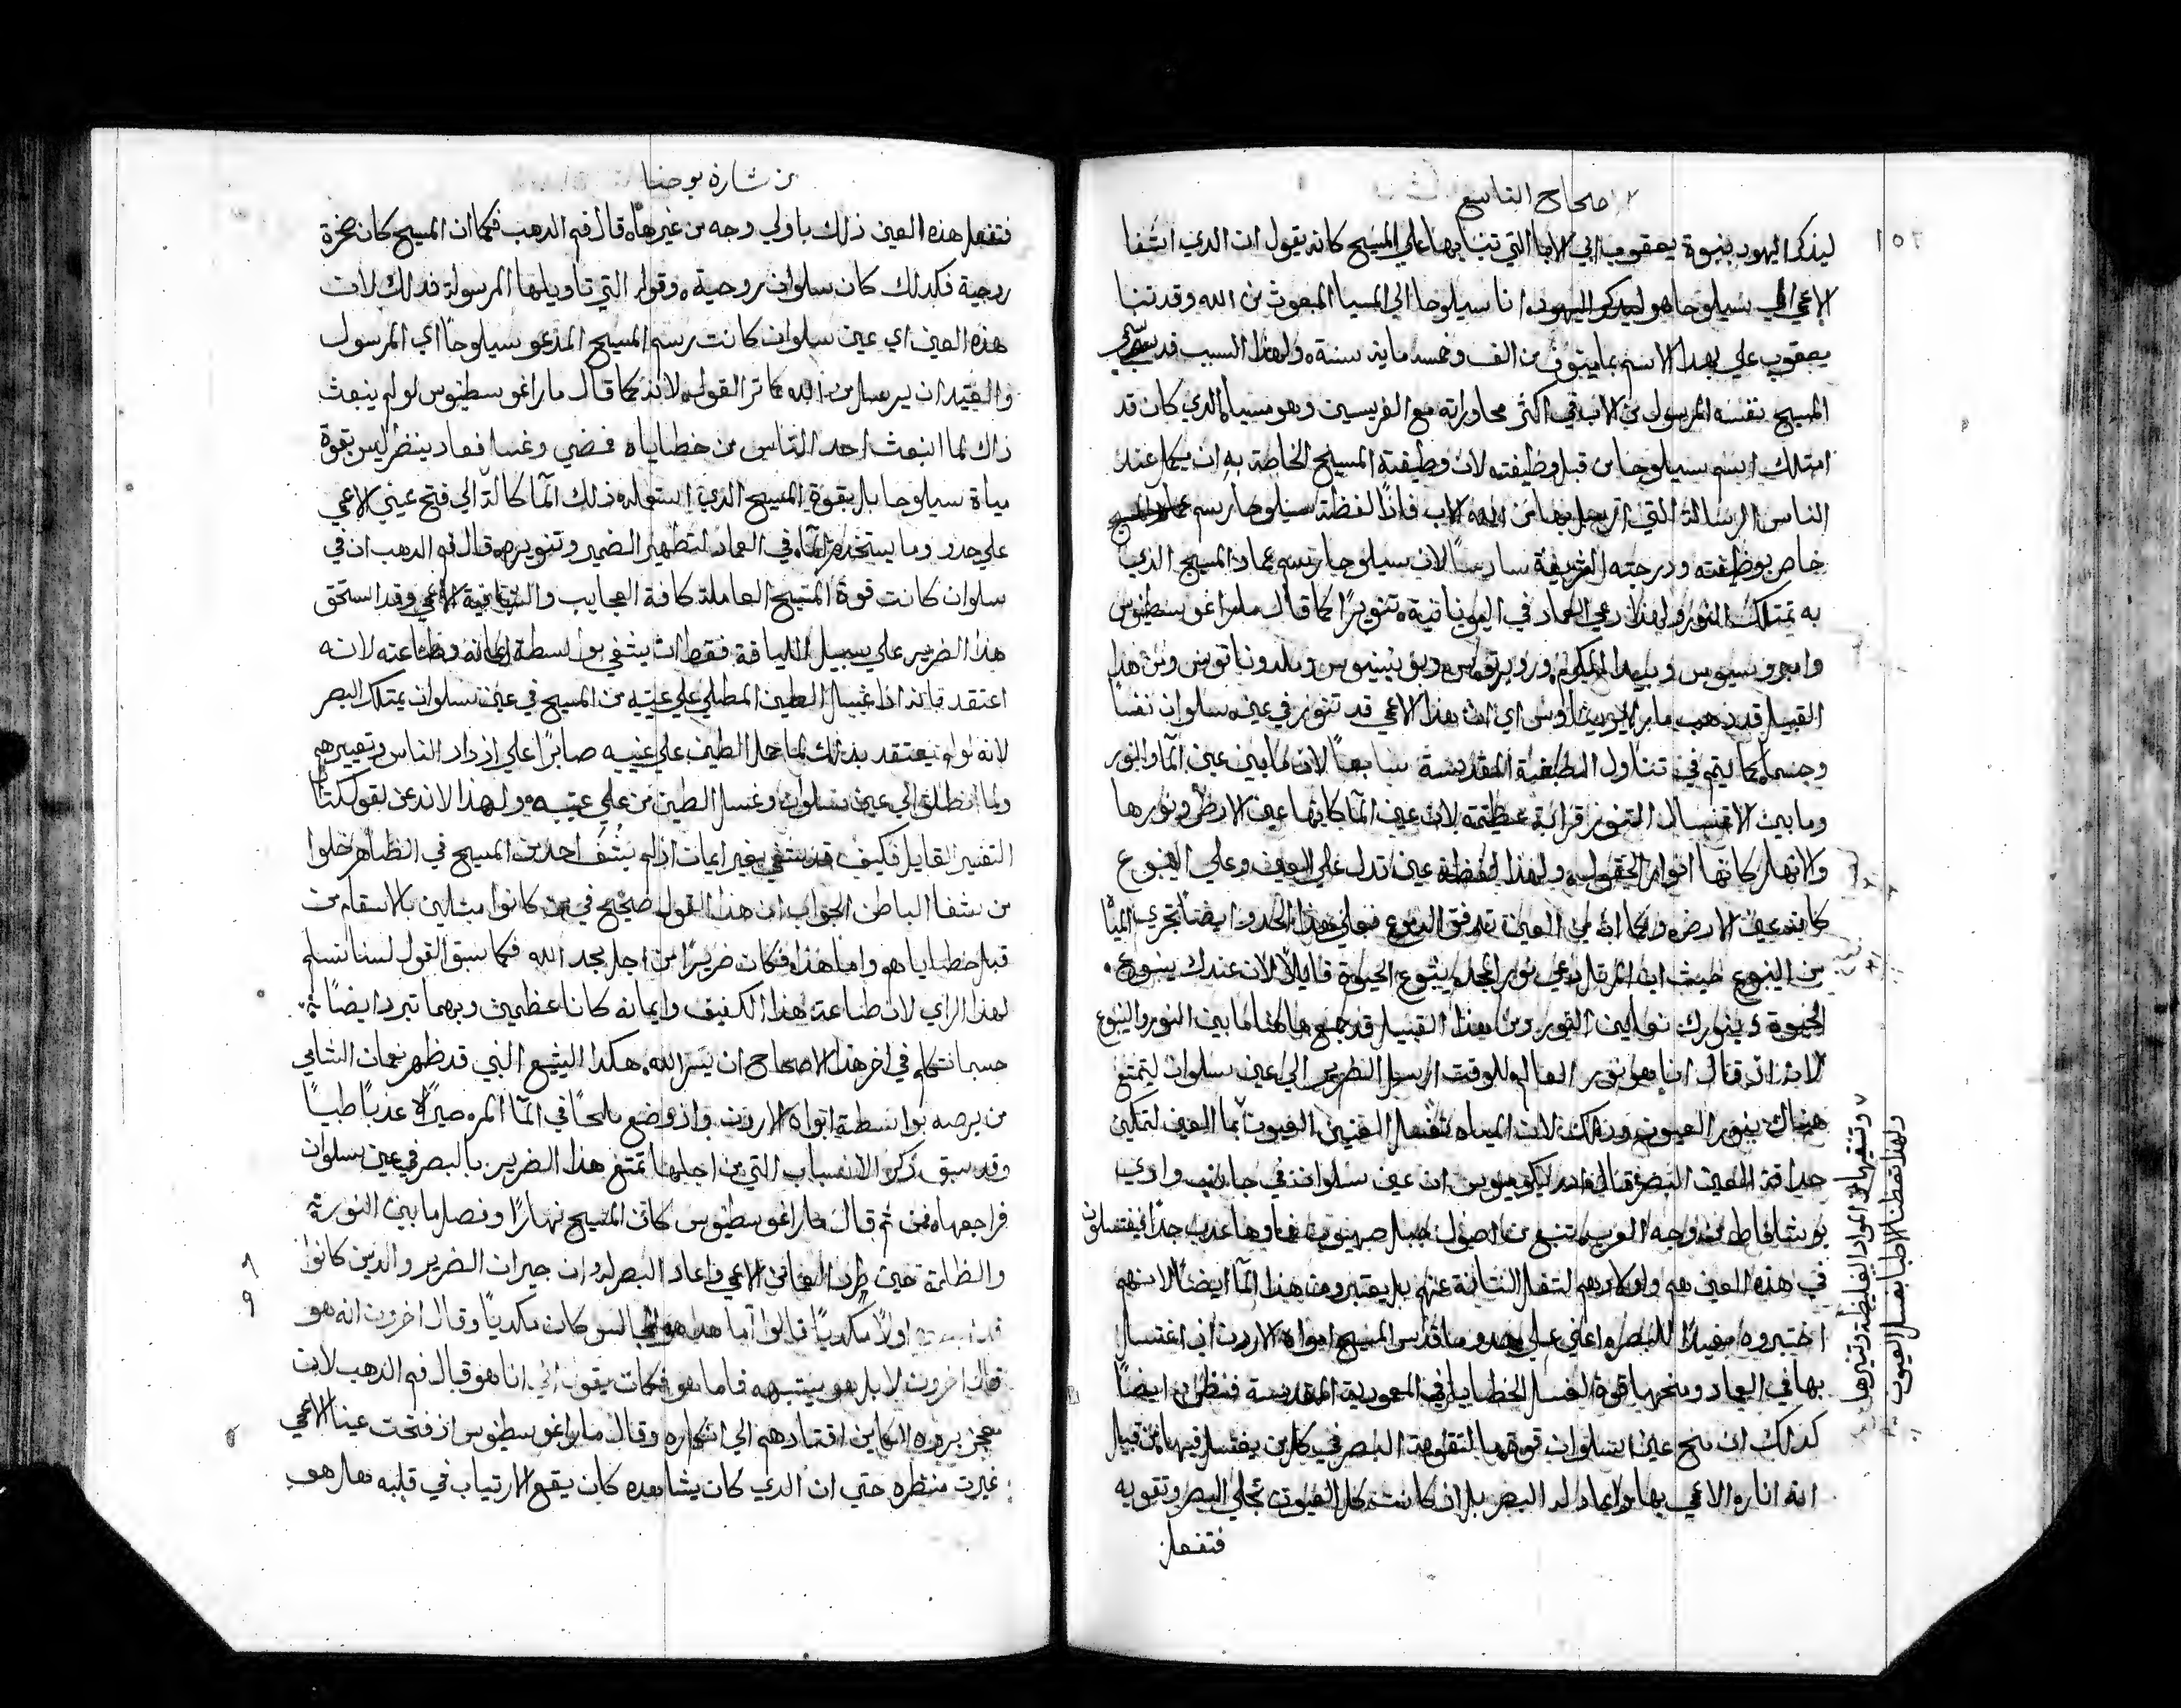 الاصحاح التاسع
ليذكر اليهود بنبوة يعقوب ابي الابا التي تنبا بها علي المسيح كانه يقول ان الدي اشفا
الاعمي الي سيلوحا هو ليدكر اليهود انا سيلوحا الي المسيا المبعوث من الله وقد تنبا
يعقوب علي بهدا الاسم بما ينوف عن الف وخمسماية سنة ولهذا السبب قد سمي
المسيح نفسه المرسول من الاب في اكثر محاوراته مع الفريسيين وهو مسيا الدي كان قد
امتلك اسم سيلوحا من قبل وظيفته لان وظيفة المسيح الخاصة به ان يكمل عند
الناس الرسالة التي ارسل بها من الله الاب فاذًا لفظة سيلوحا رسم
خاص بوظيفته ودرجته الشريفة سادسًا لان سيلوحا رسم عماد المسيح الذي
به نمتلك النور ولهذا دعي العماد في اليونانية تنويرًا كما قال ماراغوسطينوس
وامبروسيوس وبيدا المكرم وروبرتوس ومن هذا
القبيل قد ذهب اي ان هذا الاعمي قد تنور في عين سلوان نفسًا
وجسمًا كما يتم في تناول المقدسة سابعًا لان ما بين عين المآ والنور
وما بين الاغتسال التنور قرابة عظيمة لان عين المآ كانها عين الارض ونورها
والانهار كانها انوار الحقول ولهذا لفظة عين تدل علي العين وعلي الينبوع
كانه عين الارض وكما انه من العين تتدفق الدموع فعلي هذا الحدو ايضًا تجري الميا
من الينبوع حيث ان المرتل دعي نور المجد ينبوع الحيوة قايلًا لان عندك ينبوع
الحيوة وبنورك نعاين النور ومن هذا القبيل قد جمع هاهنا ما بين النور والينبوع
لانه اذ قال انا هو نور العالم للوقت ارسل الضرير الي عين سلوان ليتمتع
هناك بنور العيون وذلك لان المياه تغسل العينين العيون بما العين لتمكين
حداقة العين البصرة قال ان عين سلوان في جانب وادي
يوشافاط من وجه الغرب تنبع من اصول جبل صهيون ماوها عدب جدًا فيغتسلون
في هذه العين هم واولادهم لتغسل النتانة عنهم بل يعتبرون هذا المآ ايضًا لانهم
اختبروه مفيدًا للبصر واعني علي حدو ما قدس المسيح امواه الاردن اذ اغتسل
بها في العماد ومنحها قوة لغسل الخطايا في المعمودية المقدسة فنظن ايضًا
كذلك ان منح عين السلوان قوة ما لتقوية البصر في كل من يغتسل فيها من قبيل
انه انار الاعمي بها واعاد له البصر بل ان كانت كل العيون تجلي البصر وتقويه
فتفعل
وتنقيها من المواد الغليظة وتنيرها
ولهذا تعطنا الاطبا بغسل العيون
من بشارة يوحنا
فتفعل هذه العين ذلك باولي وجه من غيرها قال فم الدهب فكما ان المسيح كان صخرة
روحية فكدلك كان سلوان روحية وقوله التي تاويلها المرسولة فدلك لان
هذه العين اي عين سلوان كانت رسم المسيح المدعو سيلوحًا اي المرسول
والعتيد ان يرسل من الله كما تر القول لانه كما قال ماراغوسطينوس لو لم ينبعث
ذاك لما انبعث احد الناس من خطاياه فمضي وغسل فعاد ينظر ليس بقوة
مياة سيلوحا بل بقوة المسيح الدي استعمل ذلك المآ كالة الي فتح عيني الاعمي
علي حدو وما يستخدم المآ في العماد لتطهير الضمير وتنويره قال فم الدهب ان في
سلوان كانت قوة المسيح العاملة كافة العجايب والشافية الاعمي وقد استحق
هذا الضرير علي سبيل اللياقة فقط ان يشفي بواسطة ايمانه وطاعته لانه
اعتقد بانه اذا غسل الطين المطلي علي عينيه من المسيح في عين سلوان يمتلك البصر
لانه لو لم يعتقد بذلك لما حل الطين علي عينيه صابرًا علي ازدراد الناس وتعييرهم
ولما انطلق الي عين سلوان وغسل الطين من علي عينيه ولهذا لا ندعن لقول كتاب
التفسير القايل فكيف قد يشفي بغير ايمان اذ لم يشف احد من المسيح في الظاهر خلوا
من شفا الباطن الجواب ان هذا القول صحيح في من كانوا مبتلين بالاسقام من
قبل خطاياهم واما هذا فكان ضريرًا من اجل مجد الله فكما سبق القول لسنا نسلم
لهذا الراي لان طاعة هذا الكفيف وايمانه كانا عظيمين وبهما تبرر ايضًا
حسبما نتكلم في اخر هذا الاصحاح ان يسر الله هكدا اليشع النبي قد طهر نعمان الشامي
من برصه بواسطة امواه الاردن واذ وضع ملحًا في المآ المر صيره عذبًا طيبًا
وقد سبق ذكر الاسباب التي من اجلها تمتع هذا الضرير بالبصر في عين سلوان
فراجعها فمن ثم قال ماراغوسطينوس كان المسيح نهارًا وفصل ما بين النور
والظلمة حين طرد العما من الاعمي واعاد البصر له وان جيران الضرير والذين كانوا
اولًا مكديًا قالوا اما هدا هو الجالس كان مكديًا وقال اخرون انه هو
قال اخرون لا بل هو يشبهه فاما هو فكان يقول اني انا هو قال فم الدهب لان
عجز بروره الكاين اقتادهم الي انكاره وقال ماراغوسطينوس اذ فتحت عينا الاعمي
غيرت منظره حتي ان الدي كان يشاهده كان يقع الارتياب في قلبه هل هو
٨
٩